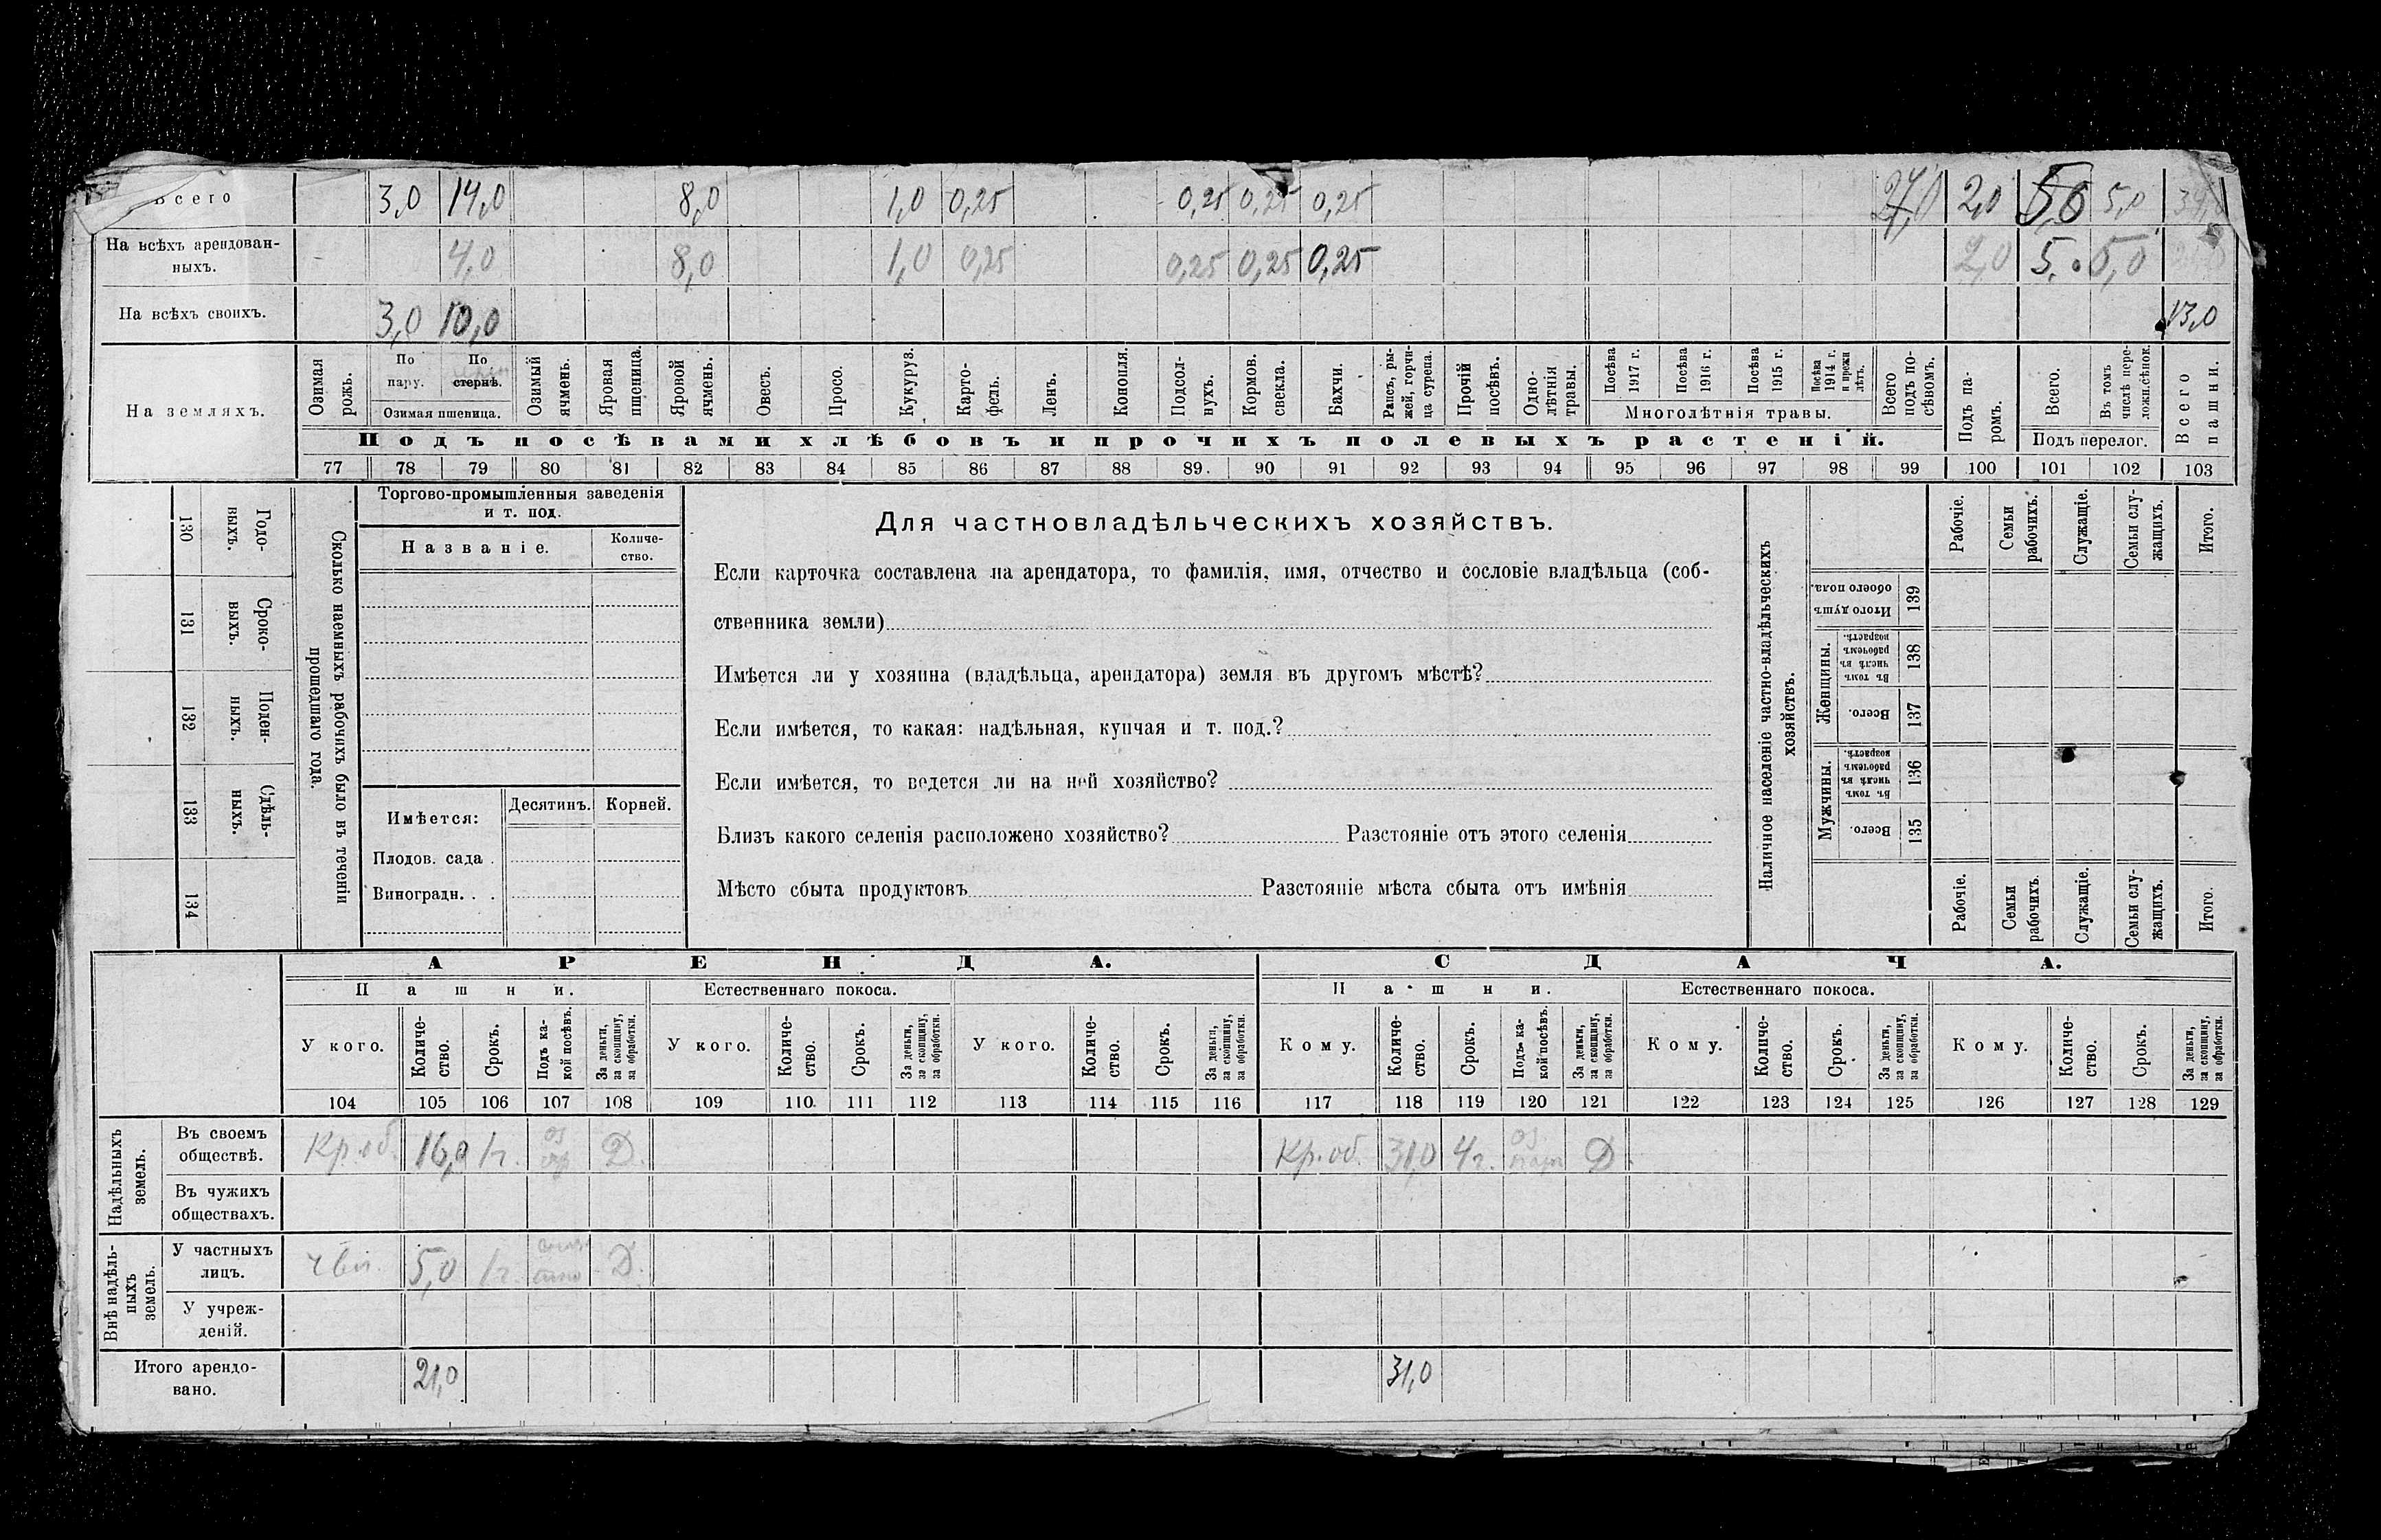 Всего 3,0 14,0 8,0 1,0 0,25 0,25 0,25 0,25 27,0 2,0 5,0 5,0
На всѣхъ арендован-
ныхъ. 4,0 8,0 1,0 0,25 0,25 0,25 0,25 2,0 5,0 5,0
На всѣхъ своихъ. 3,0 10,0 13,0
На земляхъ.
Озимая рожь.
По пару.
По стернѣ.
Озимая пшеница.
Озимый ячмень.
Яровая пшеница.
Яровой ячмень.
Овесъ.
Просо.
Кукуруз.
Карто-
фель.
Ленъ.
Конопля.
Подсол-
нухъ.
Кормов. свекла.
Бахчи.
Рапсъ, ры-
жей, горчи-
ца сурепа.
Прочій посѣвъ.
Одно-
лѣтнія травы.
Посѣва 1917 г.
Посѣва 1916 г.
Посѣва 1915 г.
Посѣва 1914 г. и прежн лѣтъ.
Многолѣтнія травы.
Всего подъ по-
сѣвомъ.
Подъ па-
ромъ.
Всего.
Въ томъ числѣ пере-
ложн.сѣнок.
Подъ перелог.
Всего пашни.
Подъ посѣвами хлѣбовъ и прочихъ полевыхъ растеній.
77 78 79 80 81 82 83 84 85 86 87 88 89. 90 91 92 93 94 95 96 97 98 99 100 101 102 103
Годо-
выхъ.
130
Сроко-
выхъ.
131
Поден-
ныхъ.
132
Сдѣль-
ныхъ.
133
134
Сколько наемныхъ рабочихъ было въ теченіи
прошедшаго года.
Торгово-промышленныя заведенія
и т. под.
Названіе.
Количе-
ство.
Имѣется:
Десятинъ.
Корней.
Плодов. сада .
Виноградн. . .
Для частновладѣльческихъ хозяйствъ.
Если карточка составлена на арендатора, то фамилія, имя, отчество и сословіе владѣльца (соб-
ственника земли)
Имѣется ли у хозяина (владѣльца, арендатора) земля въ другомъ мѣстѣ?
Если имѣется, то какая: надѣльная, купчая и т. под.?
Если имѣется, то ведется ли на ней хозяйство?
Близъ какого селенія расположено хозяйство? Разстояніе отъ этого селенія
Мѣсто сбыта продуктовъ Разстояніе мѣста сбыта отъ имѣнія
Наличное населеніе частно-владѣльческихъ
хозяйствъ.
Рабочіе.
Семьи рабочихъ.
Служащіе.
Семьи слу-
жащихъ.
Итого.
Итого душъ обоего пола.
139
Женщины.
Въ томъ числѣ въ рабочемъ возрастѣ.
138
Всего.
137
Мужчины.
Въ томъ числѣ въ рабочемъ возрастѣ.
136
Всего.
135
Рабочіе.
Семьи рабочихъ.
Служащіе.
Семьи слу-
жащихъ.
Итого.
АРЕНДА.
СДАЧА.
Пашни.
Естественнаго покоса.
Пашни.
Естественнаго покоса.
У кого.
Количе-
ство.
Срокъ.
Подъ ка-
кой посѣвъ.
За деньги, за скопщину, за обработки.
У кого.
Количе-
ство.
Срокъ.
За деньги, за скопщину, за обработки.
У кого.
Количе-
ство.
Срокъ.
За деньги, за скопщину, за обработки.
Кому.
Количе-
ство.
Срокъ.
Подъ ка-
кой посѣвъ.
За деньги, за скопщину, за обработки.
Кому.
Количе-
ство.
Срокъ.
За деньги, за скопщину, за обработки.
Кому.
Количе-
ство.
Срокъ.
За деньги, за скопщину, за обработки.
104 105 106 107 108 109 110. 111 112 113 114 115 116 117 118 119 120 121 122 123 124 125 126 127 128 129
Надѣльныхъ земель.
Въ своемъ
обществѣ. Кр. об. 16,0 1г. оз Д. Кр. об. 31,0 4г. оз Д.
Въ чужихъ
обществахъ.
Внѣ надѣль-
ныхъ земель.
У частныхъ
лицъ. 5,0 1г. Д.
У учреж-
деній.
Итого арендо-
вано. 21,0 31,0